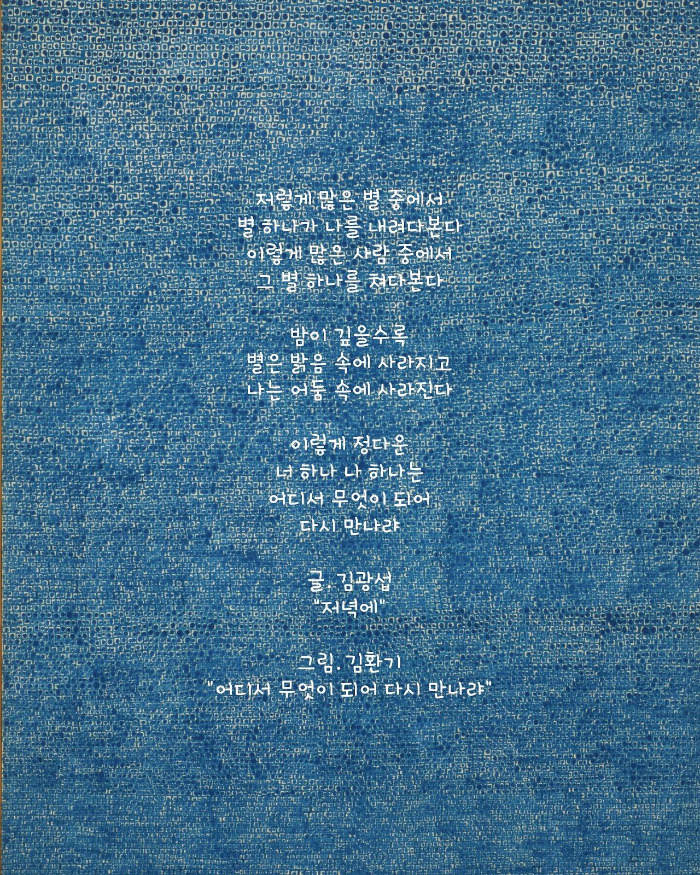 저렇게 많은 별 중에서
별 하나가 나를 내려다본다
이렇게 많은 사람 중에서
그 별 하나를 쳐다본다
밤이 깊을수록
별은 밝음 속에 사라지고
나는 어둠 속에 사라진다
이렇게 정다운
너 하나 나 하나는
어디서 무엇이 되어
다시 만나랴
글. 김광섭
"저녁에"
그림. 김환기
"어디서 무엇이 되어 다시 만나랴"